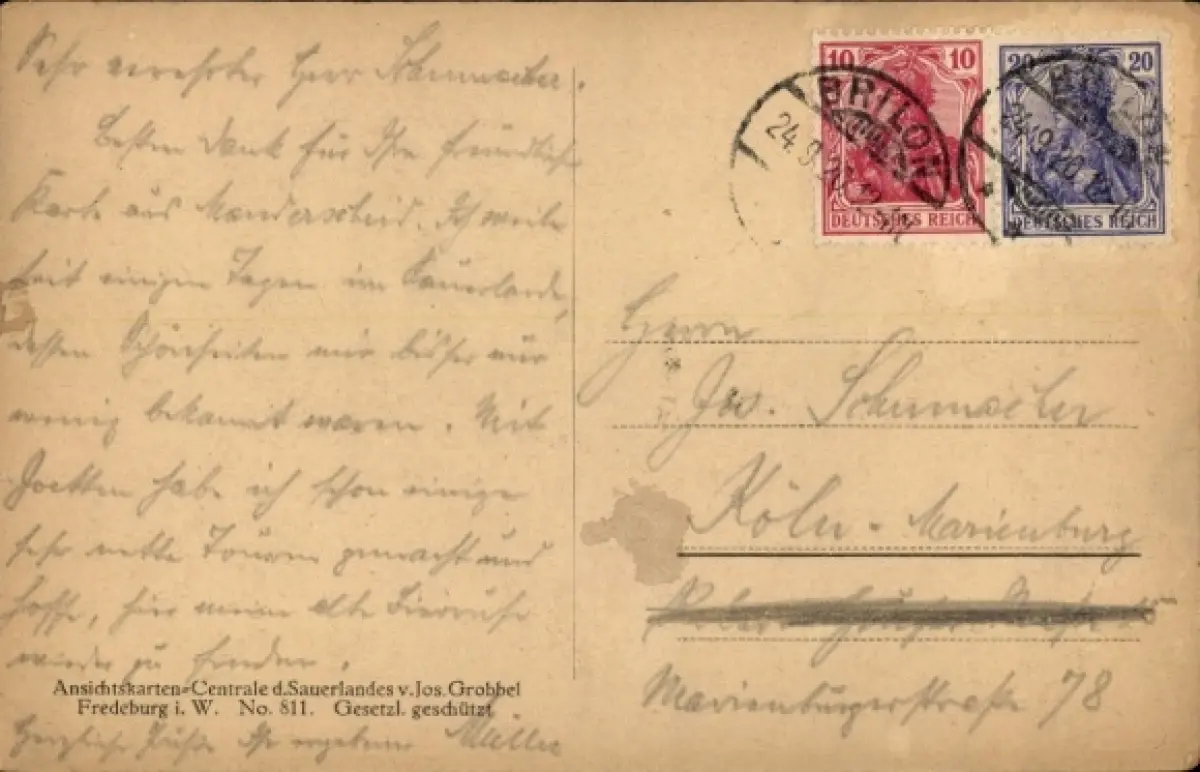 Sehr verehrter Herr Schumacher.
Besten Dank für Ihre freundliche
Karte aus Manderscheid. Ich weile
seit einigen Tagen im Sauerlande,
dessen Schönheiten mir bisher nur
wenig bekannt waren. Mit
habe ich schon einige
sehr nette Touren gemacht und
hoffe, hier meine alte
wieder zu finden.
Herzliche Grüße Ihr ergebener Müller
Ansichtskarten-Centrale d.Sauerlandes v.Jos.Grobbel
Fredeburg i. W. No. 811. Gesetzl. geschützt
10 10
DEUTSCHES REICH
20 20
DEUTSCHES REICH
BRILON
24. 9. 20. 12
BRILON
24. 9. 20. 12
Herrn
Jos. Schumacher
Köln - Marienburg
Marienburgerstraße 78